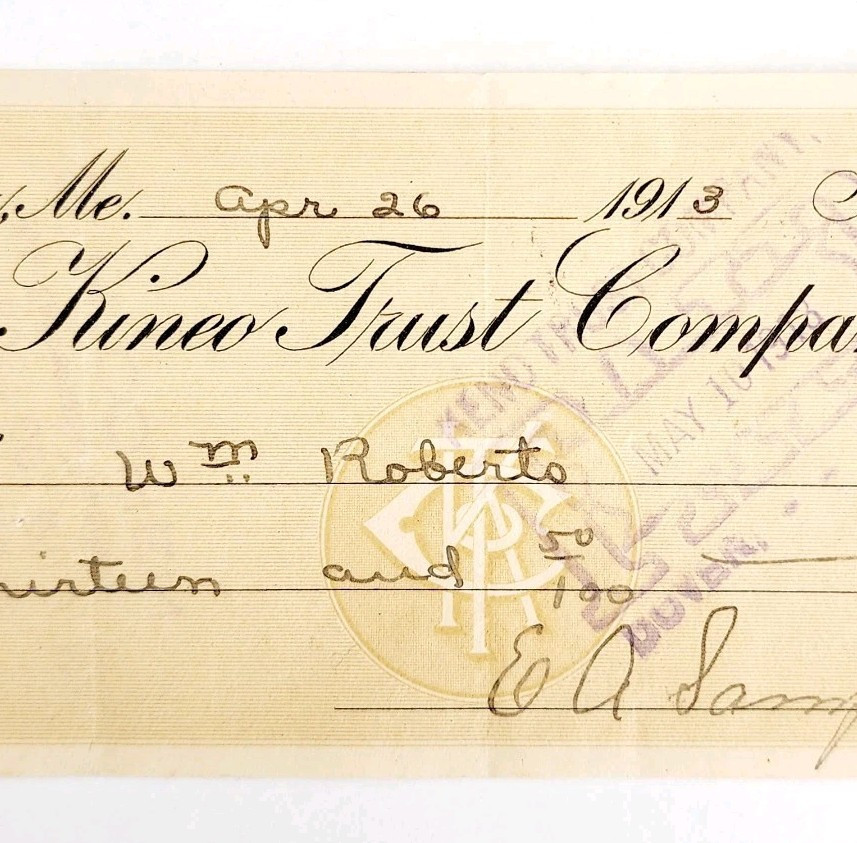 Me. Apr 26 1913
Kineo Trust Compa
Wm Roberts
irteen and 50/100
E A Samp
KTC
MAY 10 19
DOVER,